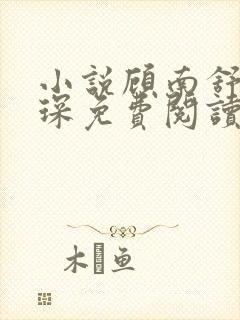 小説顾南舒
琛免費閱讀
木 鱼